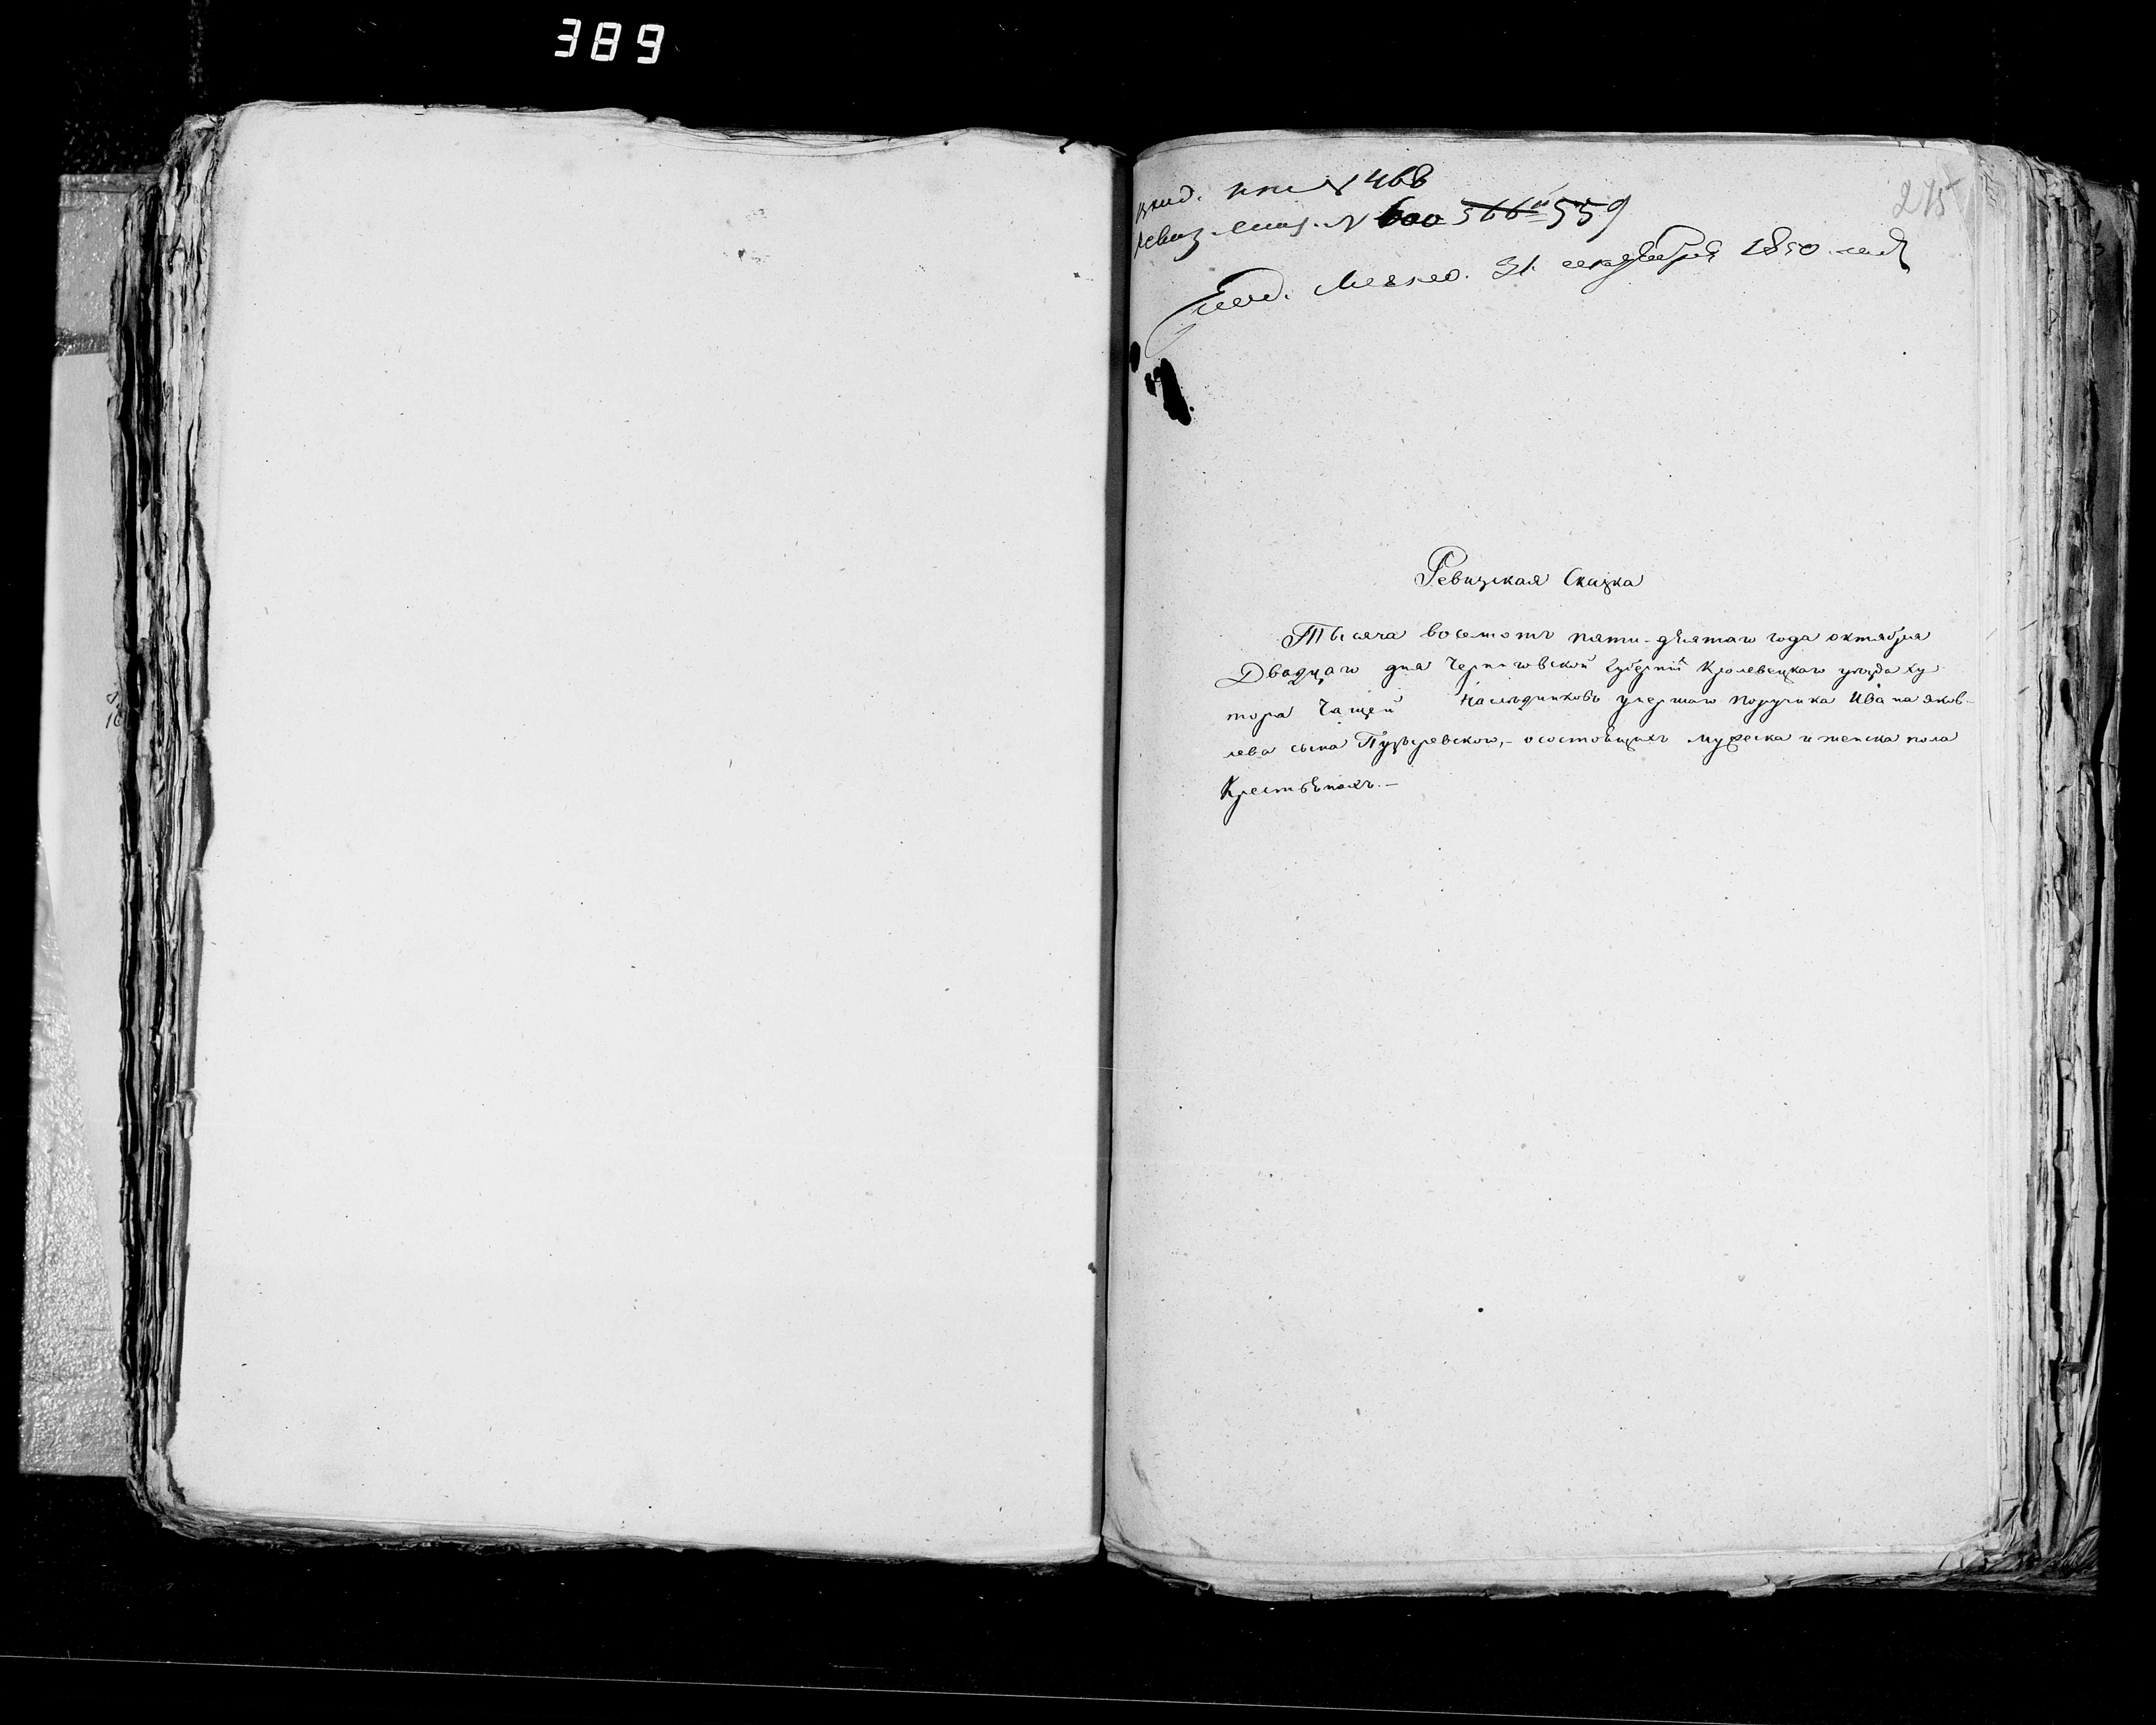 389
275
вход. кни № 468
ревиз. сказ. № 600 566 559
31. декабря 1850 года
Ревизская Сказка
Тысяча восемотъ пяти-дѣятаго года октября
Двадцаго дня Черниговской Губерніи Кролевецкаго уѣзда ху
тора Чащей Наслѣдниковъ умершаго поручика Ивана Яков-
лева сына Пузыревскаго, - о состоящихъ мужеска и женска пола
Крестьянахъ. -